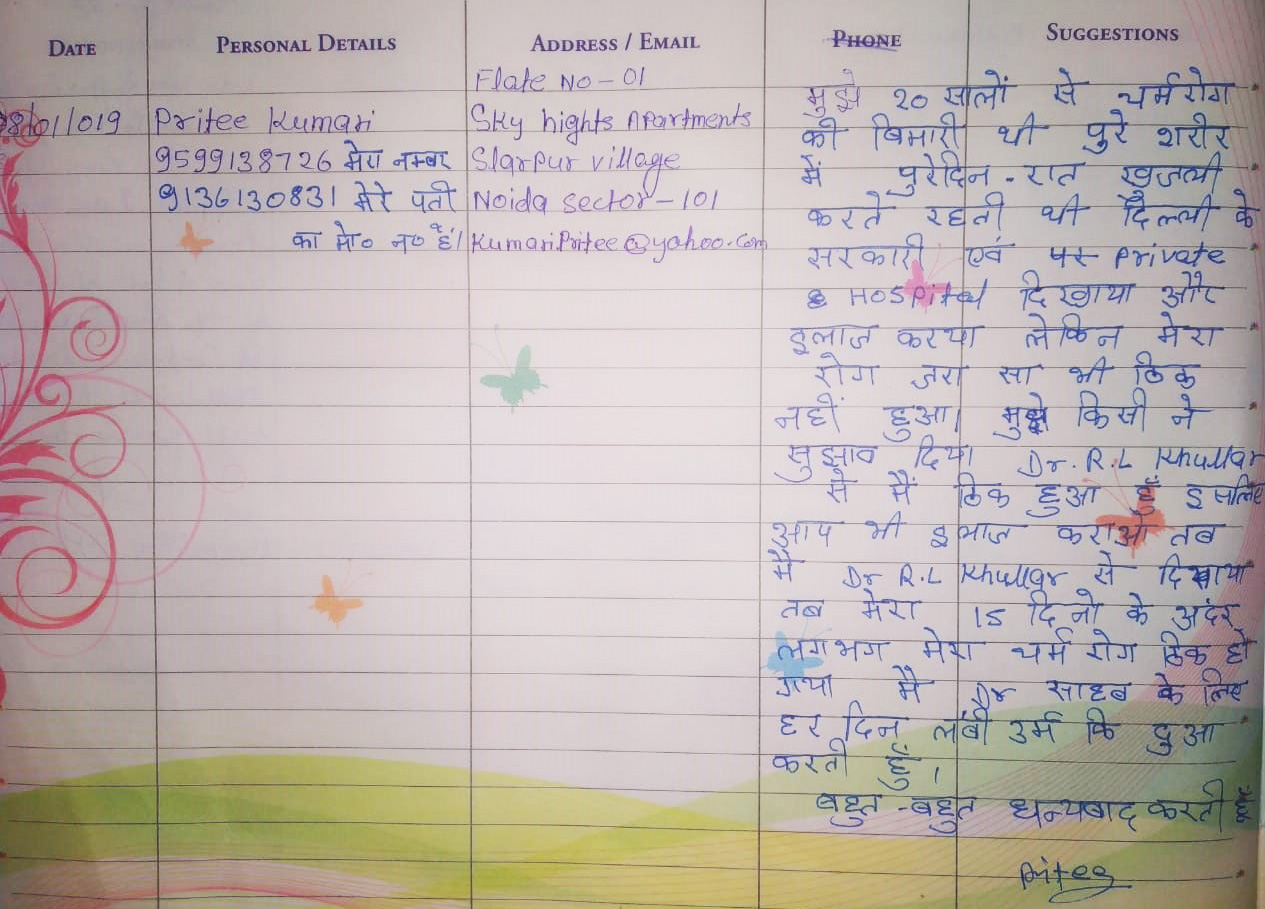 DATE
PERSONAL DETAILS
ADDRESS / EMAIL
PHONE
SUGGESTIONS
8/01/019
Pritee Kumari
9599138726 मेरा नम्बर
9136130831 मेरे पती
का मो० न० है।
Flate No - 01
Sky hights Apartments
Slarpur village
Noida sector - 101
Kumari.Pritee@yahoo.com
मुझे २० सालों से चर्म रोग
की बिमारी थी पुरे शरीर
में पुरेदिन - रात खुजली
करते रहती थी दिल्ली के
सरकारी एवं पर private
HOSPital दिखाया और
इलाज करया लेकिन मेरा
रोग जरा सा भी ठिक
नहीं हुआ। मुझे किसी ने
सुझाव दिया Dr. R.L Khullar
से मैं ठिक हुआ हूँ इसलिए
आप भी इलाज कराओ तब
मै Dr R.L Khullar से दिखाया
तब मेरा 15 दिनो के अंदर
लगभग मेरा चर्म रोग ठिक हो
गया मै Dr साहब के लिए
हर दिन लंबी उर्म कि दुआ
करती हूँ।
बहुत - बहुत धन्यबाद करती हूँ
Pritee